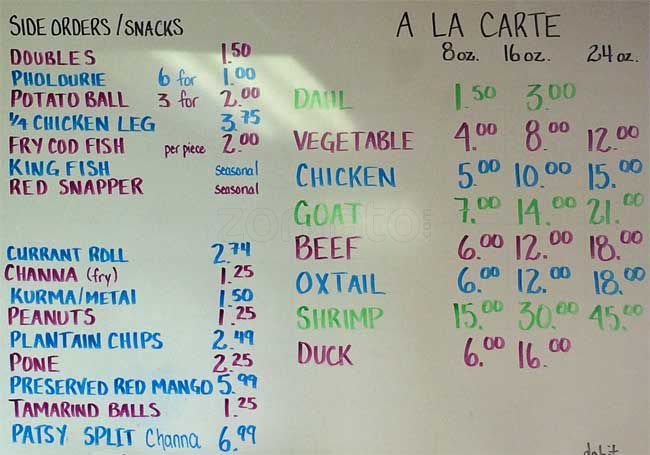 SIDE ORDERS/SNACKS
DOUBLES 1.50
PHOLOURIE 6 for 1.00
POTATO BALL 3 for 2.00
1/4 CHICKEN LEG 3.75
FRY COD FISH per piece 2.00
KING FISH seasonal
RED SNAPPER seasonal
CURRANT ROLL 2.74
CHANNA (fry) 1.25
KURMA/METAI 1.50
PEANUTS 1.25
PLANTAIN CHIPS 2.49
PONE 2.25
PRESERVED RED MANGO 5.99
TAMARIND BALLS 1.25
PATSY SPLIT Channa 6.99
A LA CARTE
8oz. 16 oz. 24 oz.
DAHL 1.50 3.00
VEGETABLE 4.00 8.00 12.00
CHICKEN 5.00 10.00 15.00
GOAT 7.00 14.00 21.00
BEEF 6.00 12.00 18.00
OXTAIL 6.00 12.00 18.00
SHRIMP 15.00 30.00 45.00
DUCK 6.00 16.00
zomato.com